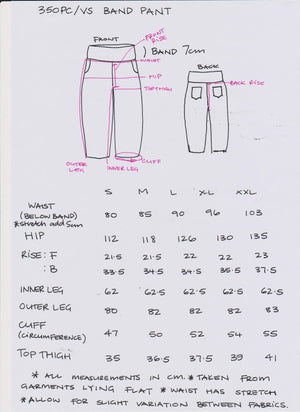 350PC/VS BAND PANT
FRONT
FRONT RISE
) BAND 7cm
WAIST
HIP
TOP THIGH
OUTER LEG
INNER LEG
CUFF
BACK
BACK RISE
S M L XL XXL
WAIST (BELOW BAND) 80 85 90 96 103
*stretch add 5cm
HIP 112 118 126 130 135
RISE: F 21.5 21.5 22 22 23
: B 33.5 34.5 34.5 35.5 37.5
INNER LEG 62 62.5 62.5 62.5 62.5
OUTER LEG 80 82 82 82 83
CUFF (CIRCUMFERENCE) 47 50 52 54 55
TOP THIGH 35 36.5 37.5 39 41
* ALL MEASUREMENTS IN CM. * TAKEN FROM
GARMENTS LYING FLAT * WAIST HAS STRETCH
* ALLOW FOR SLIGHT VARIATION BETWEEN FABRICS.